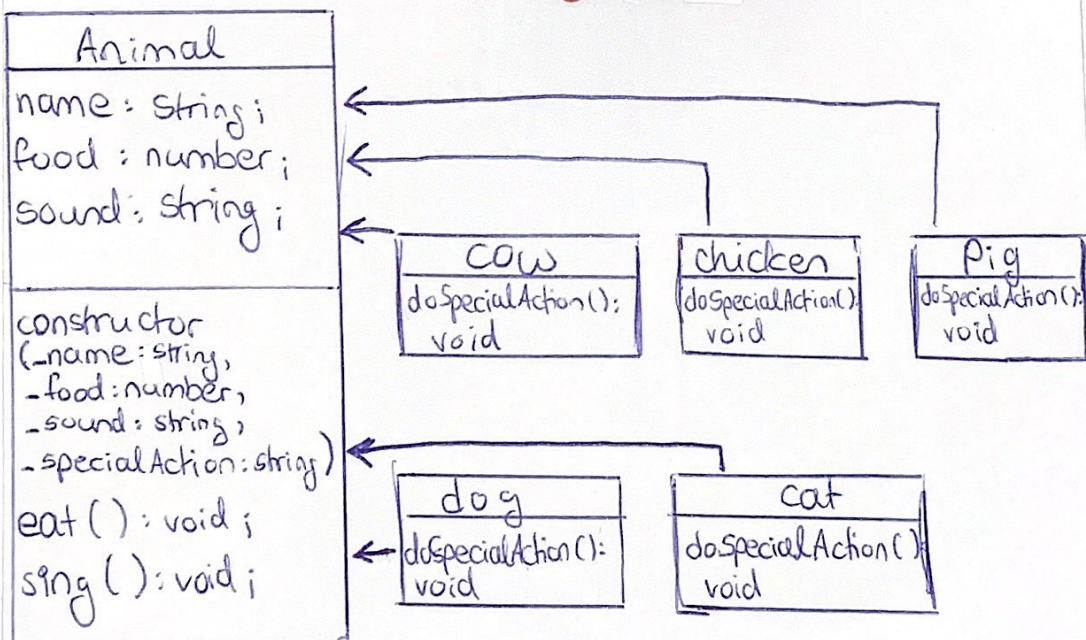 Animal
name: string;
food: number;
sound: string;
constructor
(_name: string,
_food: number,
_sound: string,
_specialAction: string)
eat(): void;
sing(): void;
cow
doSpecialAction():
void
chicken
doSpecialAction():
void
Pig
doSpecialAction():
void
dog
doSpecialAction():
void
cat
doSpecialAction():
void